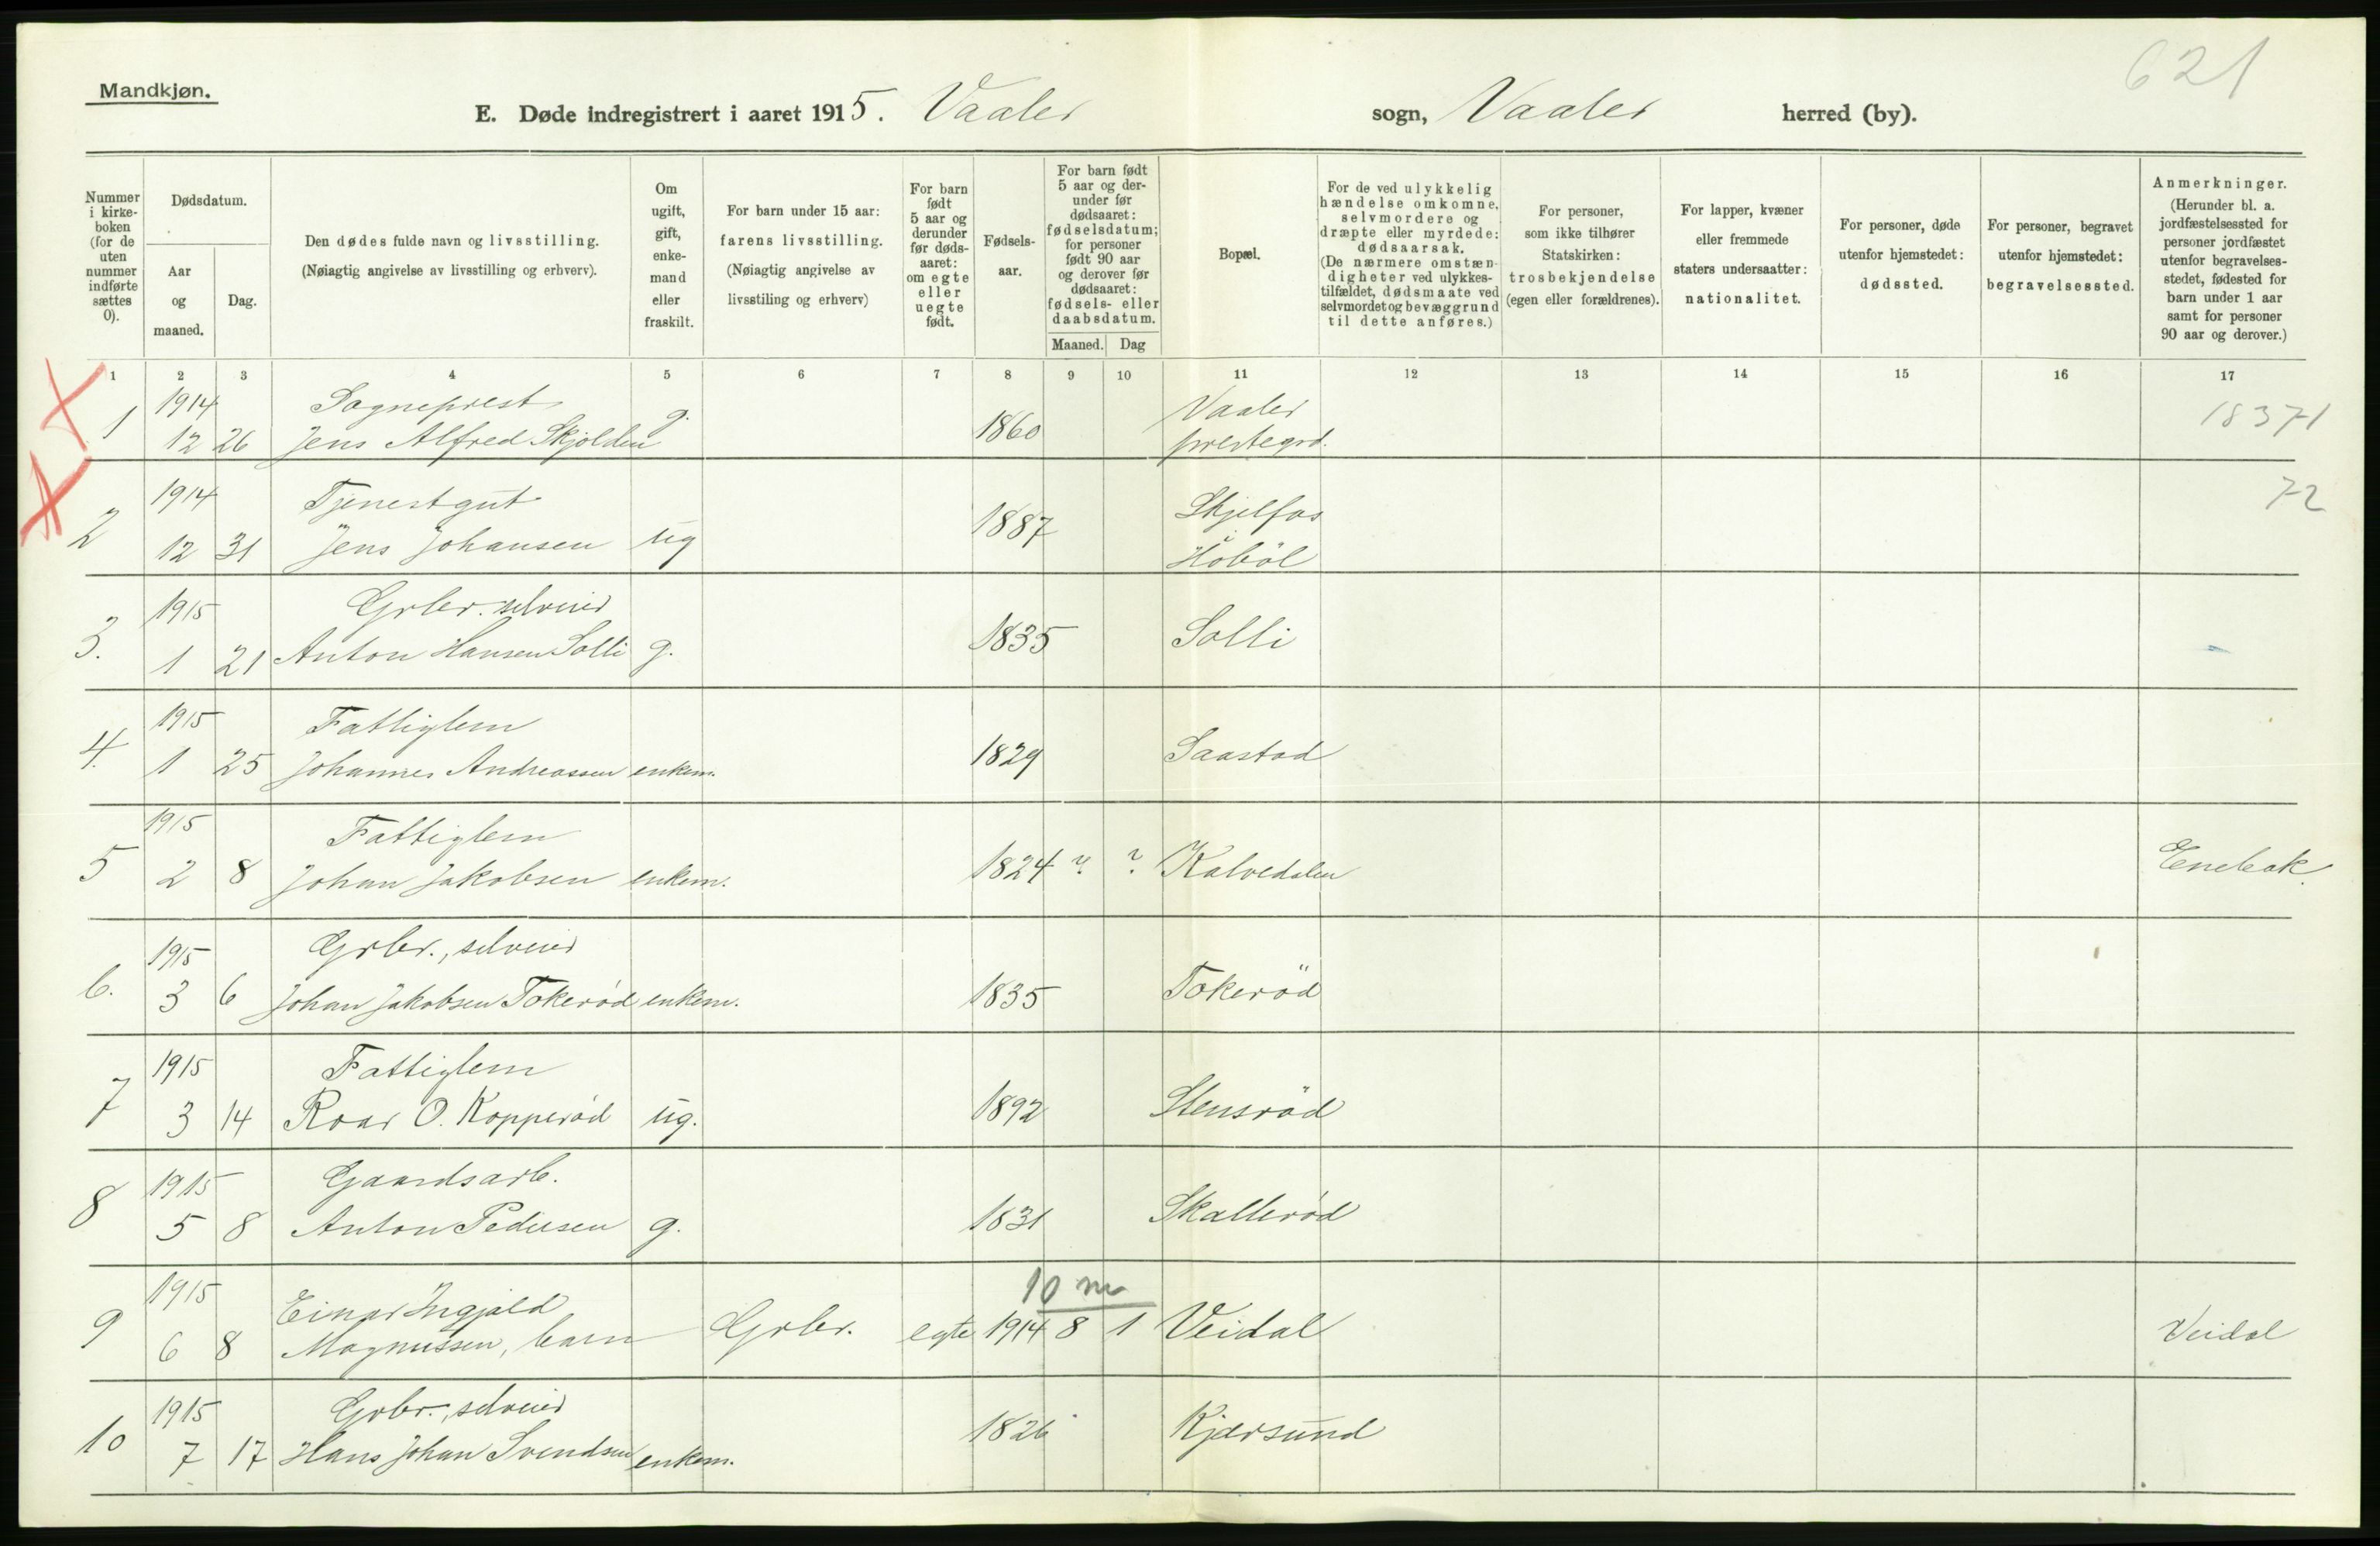 621
Mandkjøn.
E. Døde indregistrert i aaret 1915. Vaaler sogn, Vaaler herred (by).
Nummer i kirke-boken (for de uten nummer indførte sættes 0).
Dødsdatum.
Aar og maaned.
Dag.
Den dødes fulde navn og livsstilling.
(Nøiagtig angivelse av livsstilling og erhverv).
Om ugift, gift, enke-mand eller fraskilt.
For barn under 15 aar:
farens livsstilling.
(Nøiagtig angivelse av livsstiling og erhverv)
For barn født 5 aar og derunder før døds-aaret: om egte eller uegte født.
Fødsels-aar.
For barn født 5 aar og der-under før dødsaaret: fødselsdatum; for personer født 90 aar og derover før dødsaaret: fødsels- eller daabsdatum.
Maaned. Dag
Bopæl.
For de ved ulykkelig hændelse omkomne, selvmordere og dræpte eller myrdede: dødsaarsak.
(De nærmere omstæn-digheter ved ulykkes-tilfældet, dødsmaate ved selvmordet og bevæggrund til dette anføres.)
For personer, som ikke tilhører Statskirken: trosbekjendelse (egen eller forældrenes).
For lapper, kvæner eller fremmede staters undersaatter: nationalitet.
For personer, døde utenfor hjemstedet: dødssted.
For personer, begravet utenfor hjemstedet: begravelsessted.
Anmerkninger.
(Herunder bl. a. jordfæstelsessted for personer jordfæstet utenfor begravelses-stedet, fødested for barn under 1 aar samt for personer 90 aar og derover.)
1 2 3 4 5 6 7 8 9 10 11 12 13 14 15 16 17
1914 Sogneprest Vaaler 18371
1 12 26 Jens Alfred Skjolden g. 1860 prestegrd.
1914 Tjenestgut Skjelfos 72
2 12 31 Jens Johansen ug 1887 Höböl
1915 Grbr. selveier
3. 1 21 Anton Hansen Solli g. 1835 Solli
1915 Fattiglem
4. 1 25 Johannes Andreassen enkem. 1829 Saastad
1915 Fattiglem
5 2 8 Johan Jakobsen enkem. 1824 ? ? Kalvedalen Enebak.
1915 Grbr., selveier
6. 3 6 Johan Jakobsen Tokeröd enkem. 1835 Tokeröd
1915 Fattiglem
7 3 14 Roar O. Kopperöd ug. 1892 Stensröd
1915 Gaardsarb.
8 5 8 Anton Pedersen g. 1831 Skalleröd
1915 Einar Ingjald 10 m
9 6 8 Magnussen, barn Grbr. egte 1914 8 1 Veidal Veidal
1915 Grbr., selveier
10 7 17 Hans Johan Svendsen enkem. 1826 Kjærsund